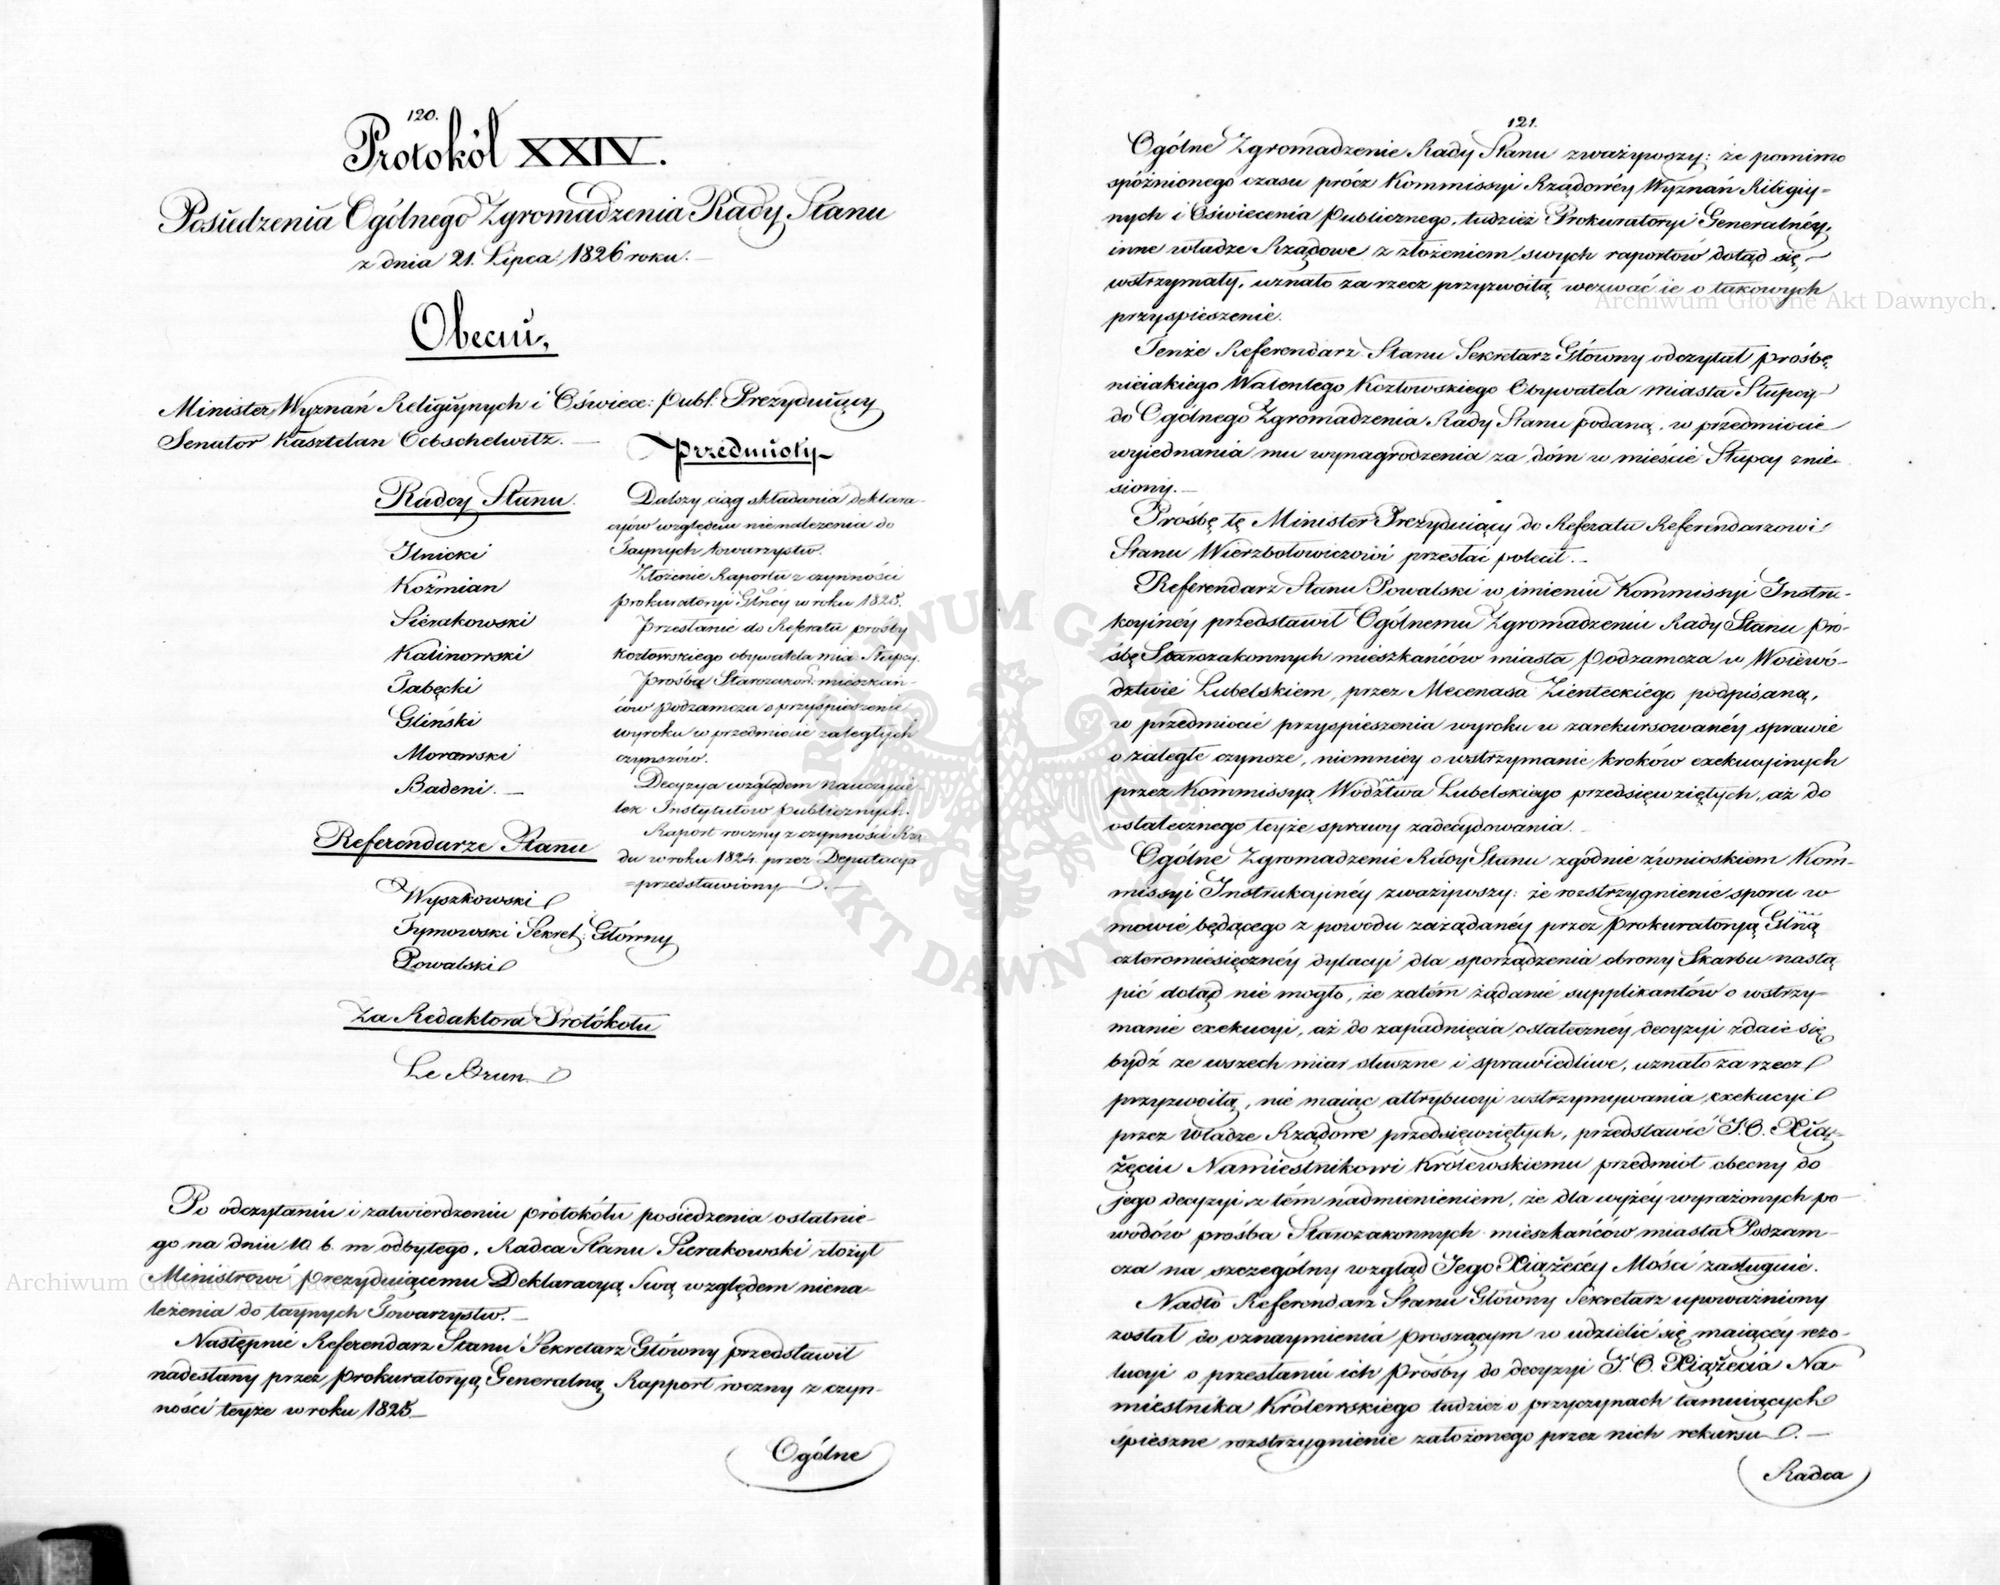 120.
Protokół XXIV.
Posiedzenia Ogólnego Zgromadzenia Rady Stanu
z dnia 21. Lipca 1826 roku.
Obecni,
Minister Wyznań Religijnych i Oświece: publ: Prezydujący
Senator Kasztelan Oebschelwitz.
Radcy Stanu
Ilnicki
Koźmian
Sierakowski
Kalinowski
Tabęcki
Gliński
Morawski
Badeni.
Referendarze Stanu
Wyszkowski
Tymowski Sekret: Główny
Powalski
Za Redaktora Protokółu
Le Brun.
Przedmioty
Dalszy ciąg składania deklara-
cyów względem nienależenia do
Taynych towarzystw.
Złożenie Raportu z czynności
prokuratoryi Głnéy w roku 1825.
Przesłanie do Referatu prośby
Kozłowskiego obywatela mia: Słupcy.
Prośba Starozakon: mieszkań-
ców podzamcza o przyspieszenie
wyroku w przedmiocie zaległych
czynszów.
Decyzya względem nauczycie-
lek Instytutów publicznych.
Raport roczny z czynności Rzą-
du w roku 1824. przez Deputacją
=przedstawiony.
Po odczytaniu i zatwierdzeniu protokółu posiedzenia ostatnie-
go na dniu 10 b. m odbytego, Radca Stanu Sierakowski złożył
Ministrowi prezydującemu Deklaracyą swą względem niena-
leżenia do taynych Towarzystw.
Następnie Referendarz Stanu Sekretarz Główny przedstawił
nadesłany przez prokuratoryą Generalną Rapport roczny z czyn-
ności teyże w roku 1825.
Ogólne
121.
Ogólne Zgromadzenie Rady Stanu zważywszy: że pomimo
spóźnionego czasu prócz Kommissyi Rządowéy Wyznań Religiy-
nych i Oświecenia publicznego, tudzież Prokuratoryi Generalnéy,
inne władze Rządowe z złożeniem swych raportów dotąd się
wstrzymały, uznało za rzecz przyzwoitą wezwać ie o takowych
przyspieszenie.
Tenże Referendarz Stanu Sekretarz Główny odczytał prośbę
nieiakiego Walentego Kozłowskiego Obywatela miasta Słupcy
do Ogólnego Zgromadzenia Rady Stanu podaną, w przedmiocie
wyjednania mu wynagrodzenia za dóm w mieście Słupcy znie-
siony.
Prośbę tę Minister Prezydujący do Referatu Referendarzowi
Stanu Wierzbołowiczowi przesłać polecił.
Referendarz Stanu Powalski w imieniu Kommissyi Instru-
kcyinéy przedstawił Ogólnemu Zgromadzeniu Rady Stanu pro-
śbę Starozakonnych mieszkańców miasta Podzamcza w Woiewó-
dztwie Lubelskiem, przez Mecenasa Zienteckiego podpisaną,
w przedmiocie przyspieszenia wyroku w zarekursowanéy sprawie
o zaległe czynsze, niemniey o wstrzymanie kroków exekucyinych
przez Kommissyą Wodztwa Lubelskiego przedsięwziętych, aż do
ostatecznego teyże sprawy zadecydowania.
Ogólne Zgromadzenie Rady Stanu zgodnie z wnioskiem Kom-
missyi Instrukcyinéy zważywszy: że rozstrzygnienie sporu w
mowie będącego z powodu zażądanéy przez Prokuratoryą Głną
czteromiesięcznéy dylacyi dla sporządzenia obrony Skarbu nastą
pić dotąd nie mogło, że zatém żądanie supplikantów o wstrzy-
manie exekucyi, aż do zapadnięcia ostatecznéy decyzyi zdaie się
bydź ze wszech miar słuszne i sprawiedliwe, uznało za rzecz
przyzwoitą, nie maiąc attrybucyi wstrzymywania exekucyi
przez Władze Rządowe przedsięwziętych, przedstawić J. O. Xią-
żęciu Namiestnikowi Królewskiemu przedmiot obecny do
jego decyzyi z tém nadmienieniem, że dla wyżéy wyrażonych po-
wodów prośba Starozakonnych mieszkańców miasta Podzam-
cza na szczególny wzgląd Jego Xiążęcéy Mości zasługuie.
Nadto Referendarz Stanu Główny Sekretarz upoważniony
został do oznaymienia proszącym w udzielić się maiącéy rezo-
lucyi o przesłaniu ich prośby do decyzyi J. O. Xiążęcia Na-
miestnika Królewskiego tudzież o przyczynach tamuiących
śpieszne rozstrzygnienie założonego przez nich rekursu.
Radca
Archiwum Główne Akt Dawnych
Archiwum Główne Akt Dawnych
ARCHIWUM GŁÓWNE AKT DAWNYCH